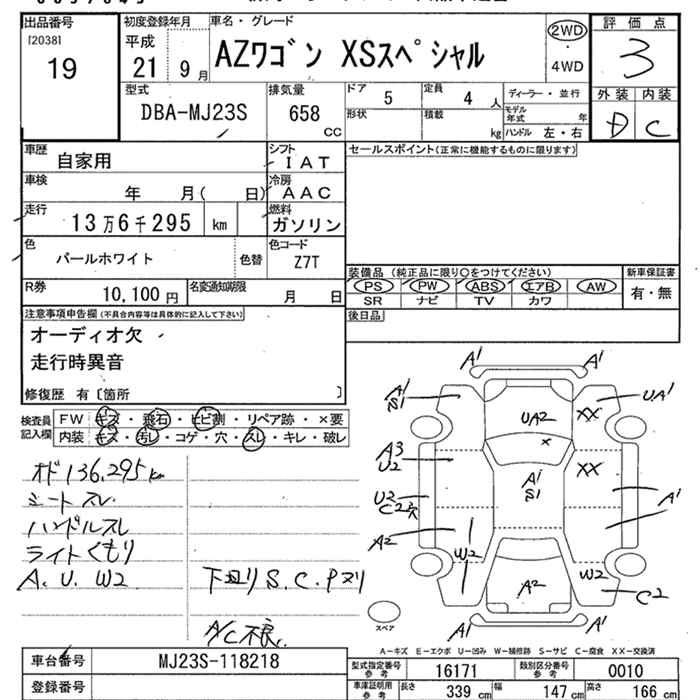 出品番号
[2038]
19
初度登録年月
平成
21年9月
車名・グレード
AZワゴン XSスペシャル
2WD
・
4WD
評価点
3
外装 内装
D C
型式
DBA-MJ23S
排気量
658
CC
ドア
5
定員
4 人
形状
積載
kg
ディーラー・並行
モデル年式 年
ハンドル 左・右
車歴
自家用
シフト
IAT
セールスポイント(正常に機能するものに限ります)
車検
年 月( 日)
冷房
AAC
走行
13万6千295 km
燃料
ガソリン
色
パールホワイト
色替
色コード
Z7T
R券
10,100円
名変通知期限
月 日
装備品(純正品に限り○をつけてください)
PS PW ABS エアB AW
SR ナビ TV カワ
新車保証書
有・無
後日品
注意事項申告欄(不具合内容等は具体的に記入して下さい)
オーディオ欠
走行時異音
修復歴 有〔箇所 〕
検査員
記入欄
FW キズ・飛石・ヒビ割・リペア跡・×要
内装 キズ・汚レ・コゲ・穴・スレ・キレ・破レ
オド136,295km
シートスレ
ハンドルスレ
ライトくもり
A.U.W2
下廻りS.C.Pヌリ
A/C不良
A1 A1
A1
S1
UA1
UA2
XX
×
A3
U2
XX
A1
S1
U2
C2穴
A1
A2
W2
W2
A2
C2
A1 A1
スペア
A-キズ E-エクボ U-凹み W-補修跡 S-サビ C-腐食 XX-交換済
車台番号
MJ23S-118218
登録番号
型式指定番号
参考
16171
類別区分番号
参考
0010
車庫証明用
参考
長さ 339 cm
幅 147 cm
高さ 166 cm